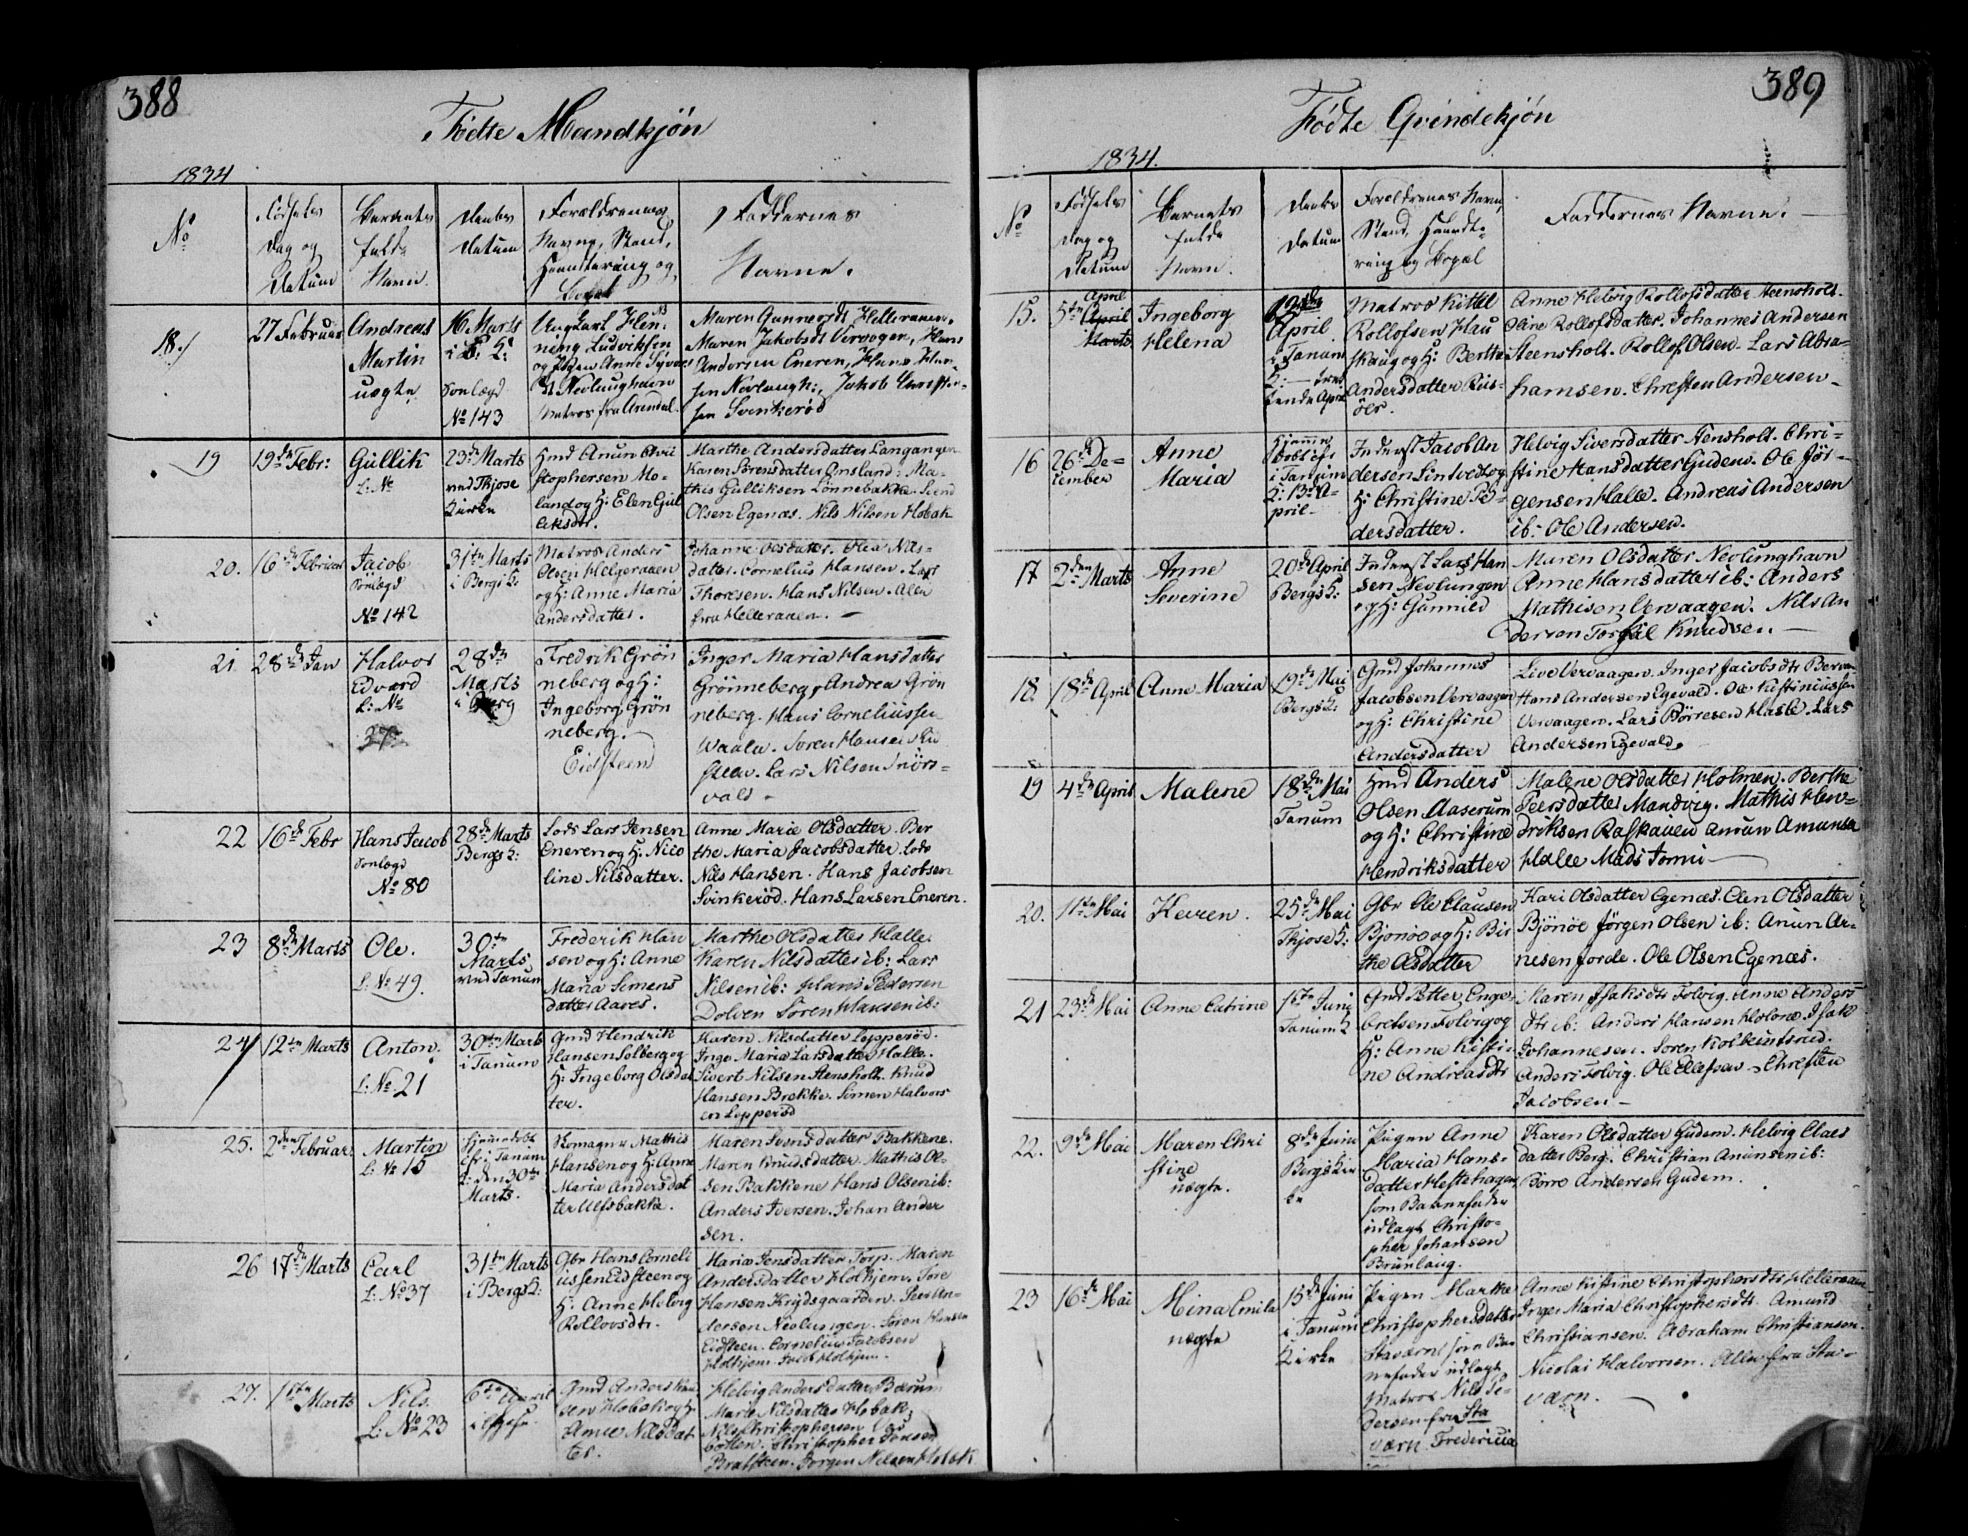 388
Fødte Mandkjøn
1834
No
Fødsels
Dag og
Datum
Barnets
fulde
Navn.
Daabs
Datum
Forældrenes
Navne, Stand,
Haandtering og
Bopæl
Faddernes
Navne.
18.
27 Februar
Andreas
Martin
uægte
16 Marts
i B: K:
Sønlægd
No 143
Ungkarl Hen
ning Ludviksen
og Pigen Anne
Nevlunghavn
Matros fra Arendal.
Maren Gunnersdt Helleraaen.
Maren Jakobsdt Vervogen, Hans
Andersen Eneren, Hans Han-
sen Nevlungh:, Jakob Christen-
sen Svinkerød
19
19de Febr:
Gullik
L: No
23de Marts
ved Thjose
Kirke
Gmd Anun Chri
stophersen Mo-
land og H: Elen Gul
liksdtr.
Marthe Andersdatter Langangen
Karen Sørensdatter Omsland. Ma-
this Gulliksen Lønnebakke. Svend
Olsen Egenæs. Nils Nilsen Hobæk
20.
16de Februar
Jacob
Sønlægd
No 142
31te Marts
i Bergs K:
Matros Anders
Olsen Helgeraaen
og H: Anne Maria
Andersdatter.
Johanne Olsdatter. Olea Nils-
datter. Cornelius Hansen. Lars
Thoresen. Hans Nilsen. Alle
fra Helleraaen. —
21.
28de Jan
Halvor
Edvard
L: No
37
28de
Marts
i Berg
Fredrik Grøn
neberg og H:
Ingeborg Grøn
neberg.
Eidsteen
Inger Maria Hansdatter
Grønneberg, Andrea Grøn
neberg. Hans Corneliussen
Waale. Soren Hansen Eid
steen. Lars Nilsen Snørs-
vald -
22
16de Febr
Hans Jacob
Sønlægd
No 80
28de Marts
Bergs K:
Lods Lars Jensen
Eneren og H: Nico
line Nilsdatter.
Anne Marie Olsdatter. Ber
the Maria Jacobsdatter. Lods
Nils Hansen. Hans Jacobsen
Svinkerød. Hans Larsen Eneren.
23
8de Marts
Ole.
L: No 49.
30te
Marts
ved Tanum
Frederik Han
sen og H: Anne
Maria Simens
datter Aaros.
Marthe Olsdatter Halle.
Karen Nilsdatter ib: Lars
Nilsen ib: Hans Pedersen
Dolven Søren Hansen ib:
24
12te Marts
Anton.
L: No 21
30te Marts
i Tanum
Gmd Hendrik
Hansen Solberg og
H: Ingeborg Olsdat
ter.
Karen Nilsdatter Lopperød.
Inge Maria Larsdatter Halle.
Sivert Nilsen Stensholt. Knud
Hansen Brekke. Simen Halvors
en Lopperød
25.
2den Februar
Martin
L: No 15
Hjemmedøbt
cfr: i Tanum
K: den 30te
Marts.
Mathis
Hansen og H: Anne
Maria Andersdat
ter Ulfsbakke.
Maren Svensdatter Bakkene.
Maren Knudsdatter. Mathis Ol-
sen Bakkene Hans Olsen ib:
Anders Iversen. Johan Ander
sen.
26
17de Marts
Carl
L: No 37
31te Marts
i Bergs K:
Gbr Hans Corneli
ussen Eidsteen og
H: Anne Helvig
Rollovsdtr.
Maria Jensdatter Torp. Maren
Andersdatter Holhjem. Tore
Hansen Krydsgaarden. Peer An-
dersen Nevlungen. Søren Hansen
Eidsteen. Cornelius Jacobsen
Holhjem. Jacob Holhjem.
27.
1ste Marts
Nils.
L: No 23
6te April
Gmd Anders Han
sen Hobæk og H:
Anne Nilsdat
ter.
Helvig Andersdatter Bærum
Marte Nilsdatter Hobæk,
Nils Christophersen
Christopher Jonsen
Bratsteen. Jørgen Nilsen Hobæk
389
Fødte Qvindekjøn
1834.
No
Fødsels
Dag og
Datum
Barnets
fulde
Navn.
Daabs
Datum
Forældrenes Navn,
Stand, Haandte-
ring og Bopæl
Faddernes Navne. —
15.
April
5te April
Marts
Ingeborg
Helena
12de
April
i Tanum
K:
Matros Kittel
Rollofsen Hau
skaug og H: Berthe
Andersdatter Riis-
öer.
Anne Helvig Rollofsdatter Steensholt.
Oline Rollofsdatter. Johannes Andersen
Steensholt. Rollof Olsen. Lars Abra-
hamsen. Christen Andersen -
16
26de De-
cember
Anne
Maria
Hjemme
døbt cfr
i Tanum
K: 13de A-
pril.
Inderst Jacob An
dersen Lindvedt og
H: Christine Pe-
dersdatter.
Helvig Siversdatter Stensholt. Chri-
stine Hansdatter Gudem. Ole Jör-
gensen Halle. Andreas Andersen
ib: Ole Andersen.
17
2den Marts
Anne
Severine
20de April
Bergs K:
Inderst Lars Han
sen Nevlungen
og H: Gunnild
Maren Olsdatter Nevlunghavn
Anne Hansdatter ib: Anders
Mathisen Vervaagen. Nils An
dersen Torgal Knudsen —
18.
18de April
Anne Maria
19de Mai
Bergs K:
Gmd Johannes
Jacobsen Vervaagen
og H: Christine
Andersdatter
Live Vervaagen. Inger Jacobsdtr
Hans Andersen Egevald. Ole Kistiniussen
Vervaagen. Lars Börresen Hasle. Lars
Andersen Egevald.
19
4de April
Malene
18de Mai
Tanum
Gmd Anders
Olsen Aaserum
og H: Christine
Hendriksdatter
Malene Olsdatter Holmen. Berthe
Peersdatter Mandvig. Mathis Hen-
driksen Raskauen Anun Amunsen
Halle Mads —
20.
11te Mai
Karen.
25de Mai
Thjose K:
Gbr Ole Clausen
Bjønøe og H: Bir
the Olsdatter
Kari Olsdatter Egenæs. Elen Olsdatter
Bjönöe Jörgen Olsen ib: Anun Ar-
nesen Jorde. Ole Olsen Egenæs.
21
23de Mai
Anne Catrine
15de Juni
Tanum K
Gmd Petter Enge
bretsen Folvig og
H: Anne Kisti-
ne Andreasdtr
Maren Isaksdtr Folvig. Anne Anders
dtr ib: Anders Hansen Holone. Isak
Johannesen. Soren Kolbeinsrød.
Anders Folvig. Ole Ellefsen. Christen
Jacobsen —
22.
9de Mai
Maren Chri
stine
uægte.
8de Juni
Bergs Kir
ke
Pigen Anne
Maria Hans-
datter Hestehagen,
som Barnefader
udlagt Christo-
pher Johansen
Brunlaug.
Karen Olsdatter Gudem. Helvig Claes
datter Berg. Christian Anunsen ib:
Börre Andersen Gudem.
23
16de Mai
Mina Emilie
uægte
15de Juni
i Tanum
Kirke
Pigen Marthe
Christophersdatter
Staværn, som Bar
nefader udlagt
Matros Nils Pe-
dersen fra Sta
værn. Fredericia
Anne Kistine Christophersdtr Helleraaen
Inger Maria Christophersdtr. Amund
Christiansen. Abraham Christiansen.
Nicolai Halvorsen. Alle fra Sta-
værn.